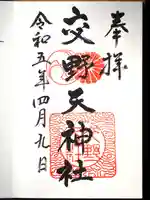 奉拝
交野天神社
令和五年四月九日